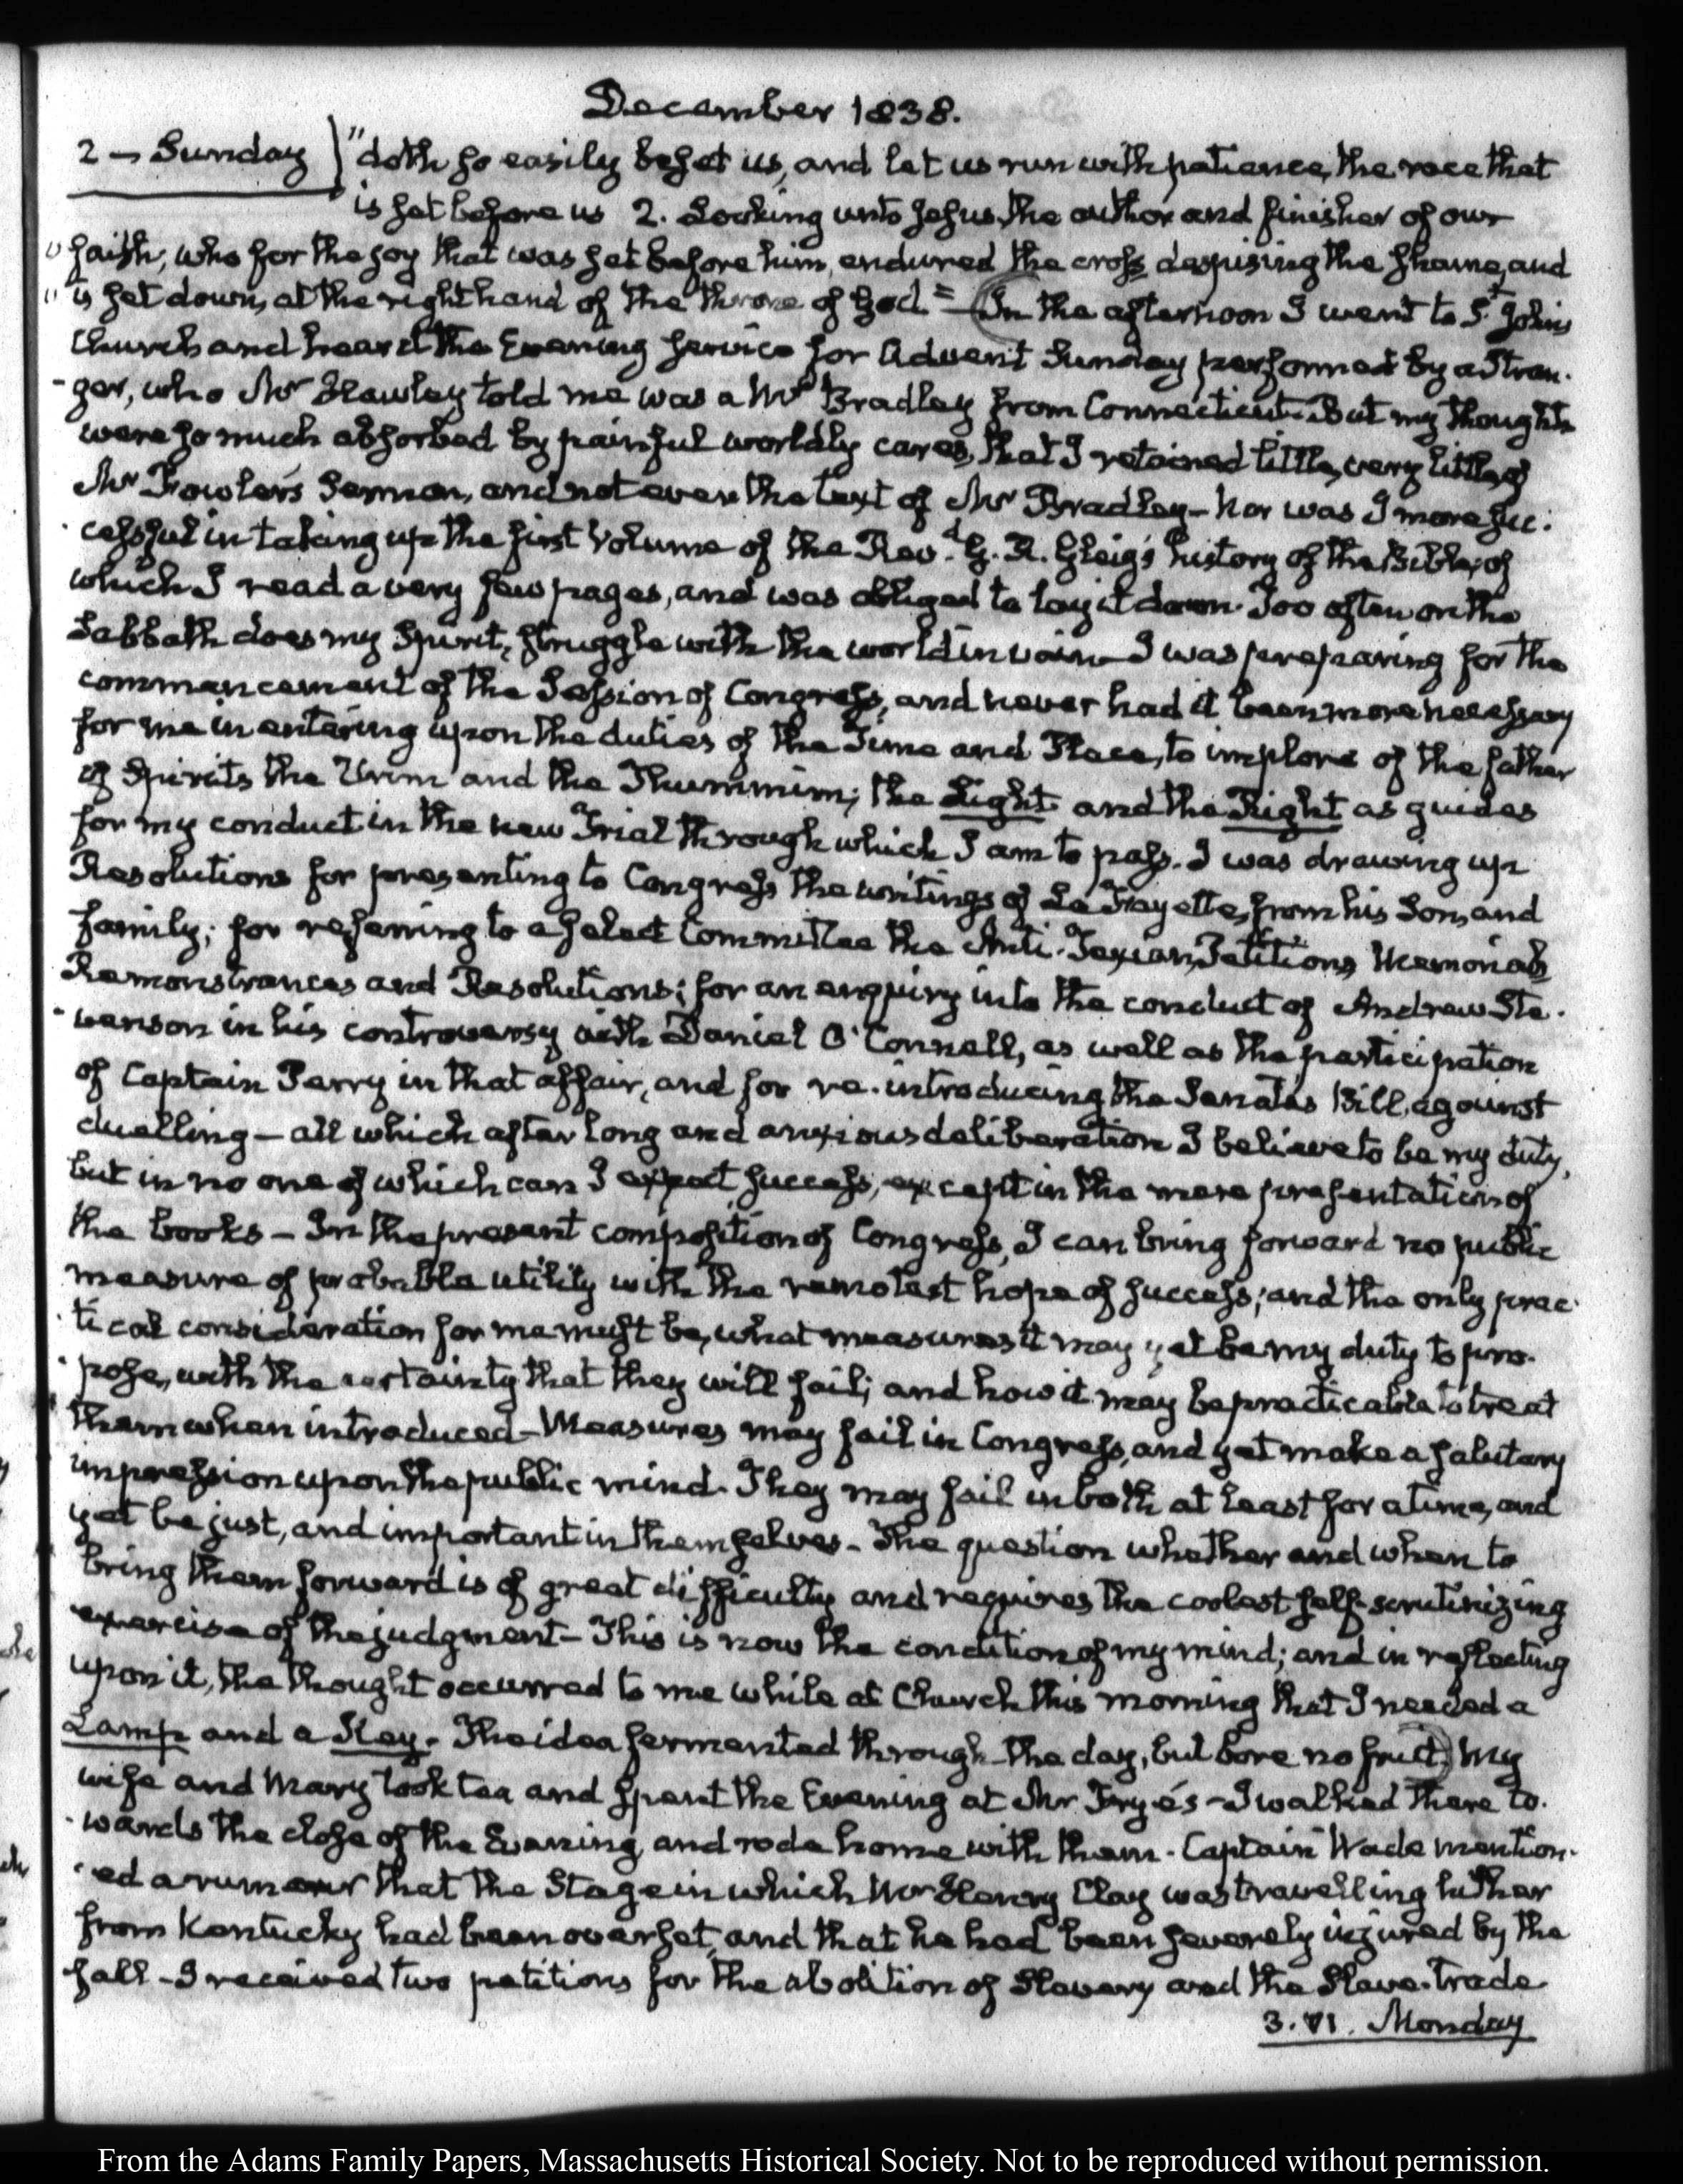 December 1838.
2 – Sunday } "doth so easily beset us, and let us run with patience, the race that
is set before us 2. Looking unto Jesus, the author and finisher of our
" faith, who for the joy that was set before him, endured the cross despising the shame, and
" is set down, at the right hand of the throne of God." – (In the afternoon I went to St. John's
Church and heard the Evening service for Advent Sunday performed by a Stran-
-ger, who Mr Hawley told me was a Mr Bradley from Connecticut. But my thoughts
were so much absorbed by painful worldly cares, that I retained little, very little, of
Mr Fowler's Sermon, and not even the text of Mr Bradley – nor was I more suc-
-cessful in taking up the first volume of the Revd. G. R. Gleig's history of the Bible, of
which I read a very few pages, and was obliged to lay it down. Too often on the
Sabbath does my Spirit, struggle with the world in vain – I was preparing for the
commencement of the Session of Congress, and never had it been more necessary
for me in entering upon the duties of the Time and Place, to implore of the father
of Spirits the Urim and the Thummim; the Light and the Right as guides
for my conduct in the new Trial through which I am to pass. I was drawing up
Resolutions for presenting to Congress the writings of La Fayette, from his Son, and
family; for referring to a select Committee the Anti-Texian, Petitions, Memorials
Remonstrances and Resolutions; for an enquiry into the conduct of Andrew Ste-
-venson in his controversy with Daniel O'Connell, as well as the participation
of Captain Perry in that affair, and for re-introducing the Senate's Bill, against
duelling – all which after long and anxious deliberation I believe to be my duty,
but in no one of which can I expect success, except in the mere presentation of
the books – In the present composition of Congress, I can bring forward no public
measure of probable utility with the remotest hope of success; and the only prac-
-tical consideration for me must be, what measures it may yet be my duty to pro-
-pose, with the certainty that they will fail; and how it may be practicable to treat
them when introduced – Measures may fail in Congress, and yet make a salutary
impression upon the public mind. They may fail in both at least for a time, and
yet be just, and important in themselves – The question whether and when to
bring them forward is of great difficulty and requires the coolest self-scrutinizing
exercise of the judgment – This is now the condition of my mind; and in reflecting
upon it, the thought occurred to me while at Church this morning that I needed a
Lamp and a Key. The idea fermented through the day, but bore no fruit) My
wife and Mary took tea and spent the Evening at Mr Frye's – I walked there to-
-wards the close of the Evening, and rode home with them. Captain Wade mention-
-ed a rumour that the Stage in which Mr Henry Clay was travelling hither
from Kentucky had been overset, and that he had been severely injured by the
fall – I received two petitions for the abolition of Slavery and the Slave-trade
3. VI. Monday
From the Adams Family Papers, Massachusetts Historical Society. Not to be reproduced without permission.